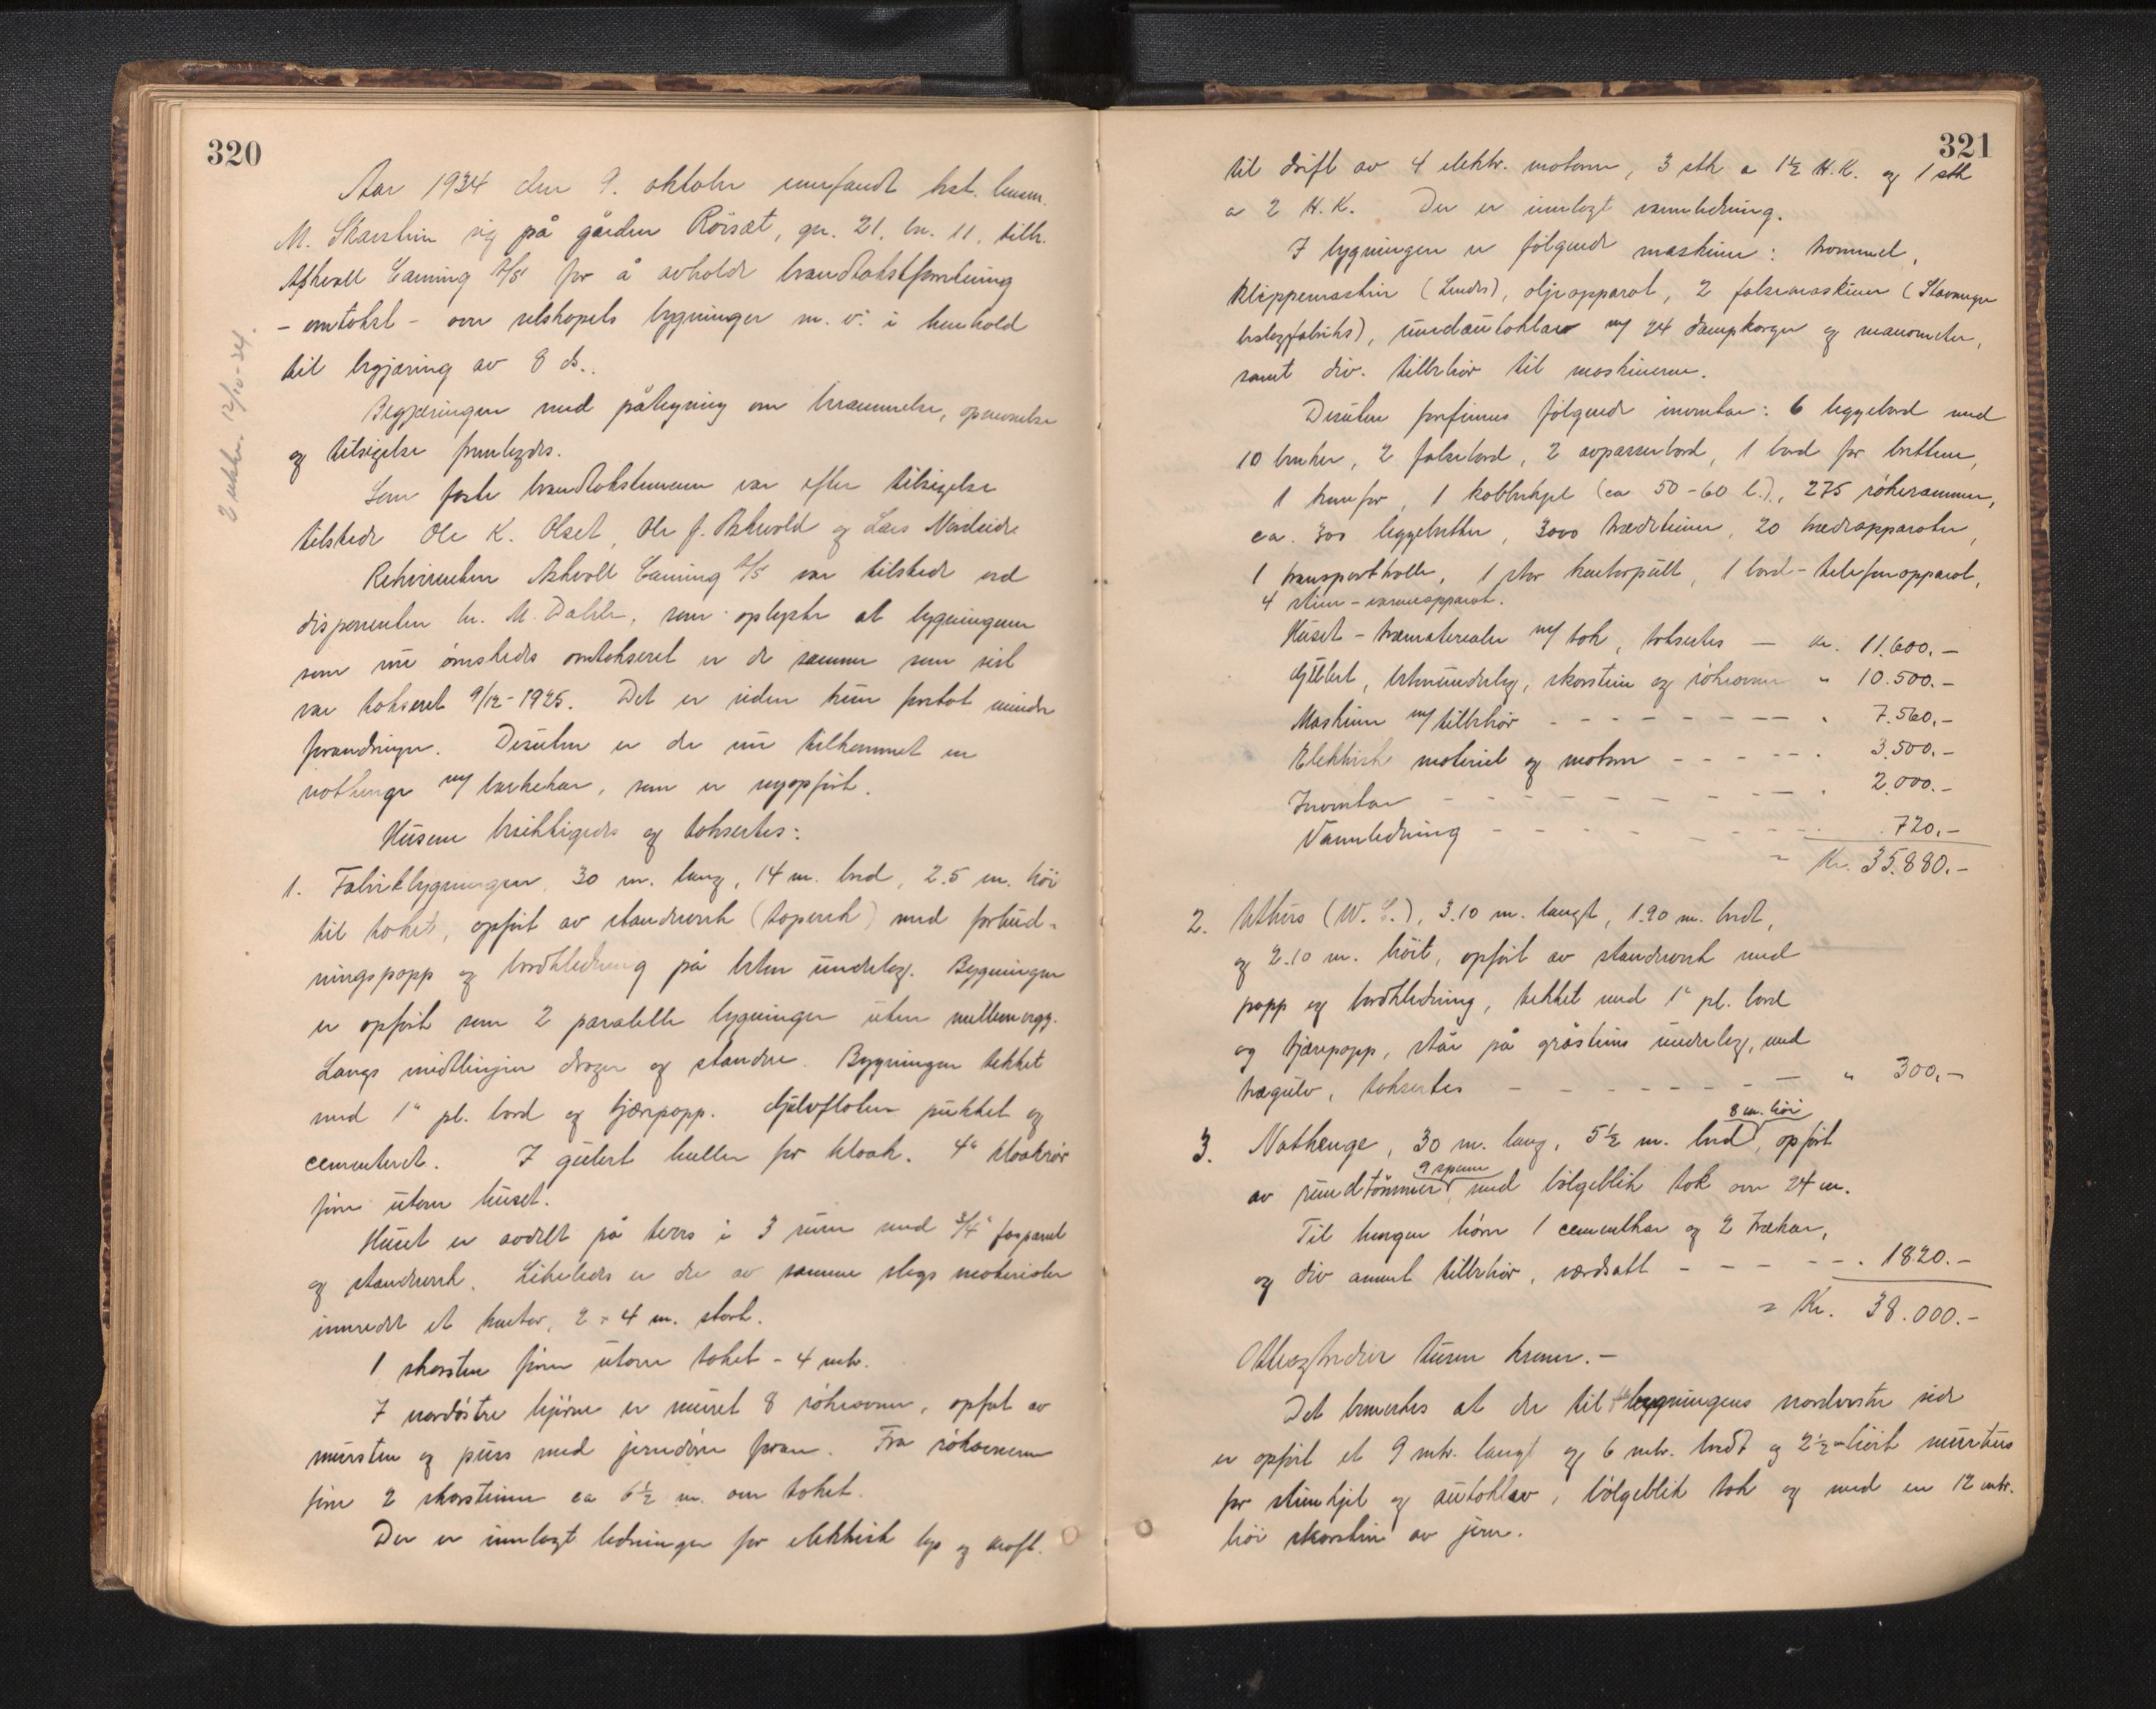 320
Aar 1934 den 9. oktober innfandt kst. lensm.
M. Skarstein sig på gården Röisæt, gn. 21, bn. 11, tilh.
Askvoll Canning A/S for å avholde brandtakstforretning
- omtakst - over selskapets bygninger m. v. i henhold
til begjæring av 8 ds..
Begjæringen med påtegning om berammelse, opnevnelse
og tilsigelse fremlegdes.
Som faste brandtakstmenn var efter tilsigelse
tilstede Ole K. Olset, Ole J. Askvold og Lars Nordeide.
Rekvirenten Askvoll Canning A/S var tilstede ved
disponenten hr. M. Dahle, som oplyste at bygningene
som nu ønskedes omtakseret er de samme som sist
var takseret 9/12-1925. Det er siden kun foretat mindre
forandringer. Desuten er der nu tilkommet en
nothenge m/ barkekar, som er nyopført.
Husene besiktigedes og taksertes:
1. Fabrikbygningen, 30 m. lang, 14 m. bred, 2.5 m. høi
til taket, opført av standverk (topench) med forhud-
ningspapp og bordkledning på beton underlag. Bygningen
er opført som 2 paralelle bygninger uten mellemvegg.
Langs midtlinjen drager og standere. Bygningen tekket
med 1" pl. bord og tjærepapp. Gulvflaten pukket og
cementeret. I gulvet huller for kloak. 4" kloakrør
fører utover huset.
Huset er avdelt på tvers i 3 rum med 3/4" faspanel
og standverk. Likeledes er der av samme slags materialer
innredet et kontor, 2 × 4 m. stort.
1 skorsten fører utover taket - 4 mtr.
I nordøstre hjørne er muret 8 røkeovner, opført av
mursten og puss med jerndøre foran. Fra røkovnene
fører 2 skorstener ca 6½ m. over taket.
Der er innlagt ledninger for elektrisk lys og kraft.
2 utskr. 12/10-34.
321
til drift av 4 elektr. motorer, 3 stk a 1½ H.K. og 1 stk
a 2 H.K. Der er innlagt vannledning.
I bygningen er følgende maskiner: trommel,
klippemaskin (Lenders), oljeapparat, 2 falsemaskiner (Stavanger
beslagfabriks), rundautoklav m/ 24 dampkorger og manometer,
samt div. tilbehør til maskinerne.
Desuten forfinnes følgende inventar: 6 leggebord med
10 benker, 2 falsebord, 2 avpasserbord, 1 bord for brettene,
1 komfor, 1 kobberkjel (ca 50-60 l.), 275 røkerammer,
ca. 300 leggebretter, 3000 trædeteiner, 20 trædeapparater,
1 transportralle, 1 stor kontorpult, 1 bord-telefonapparat,
4 stim-varmeapparat.
Huset - træmaterialer m/ tak, taksertes — kr. 11.600.-
Gulvet, betonunderlag, skorstein og røkeovner " 10.500.-
Maskiner m/ tilbehør - - - - - - - — . 7.560.-
Elektrisk materiel og motorer - - - - - . 3.500.-
Inventar - - - - - - - - - - — . 2.000.-
Vannledning - - - - - - - - . 720.-
= Kr. 35.880.-
2. Uthus (W. C.), 3.10 m. langt, 1.90 m. bredt,
og 2.10 m. høit, opført av standverk med
papp og bordkledning, tekket med 1" pl. bord
og tjærepapp, står på gråsteins underlag, med
trægulv, taksertes - - - - - - - - — " 300.-
8 m. høi
3. Nothenge, 30 m. lang, 5½ m. bred, opført
9 spenn
av rundtømmer, med bølgeblik tak over 24 m.
Til hengen hører 1 cementkar og 2 trækar,
og div annet tilbehør, verdsatt - - - - - - . 1820.-
= Kr. 38.000.-
Otteogtredive tusen kroner.-
Det bemerkes at der til bygningens nordvestre side
er opført et 9 mtr. langt og 6 mtr. bredt og 2½ m høit murhus
for stimkjel og autoklav, bølgeblik tak og med en 12 mtr.
høi skorstein av jern.